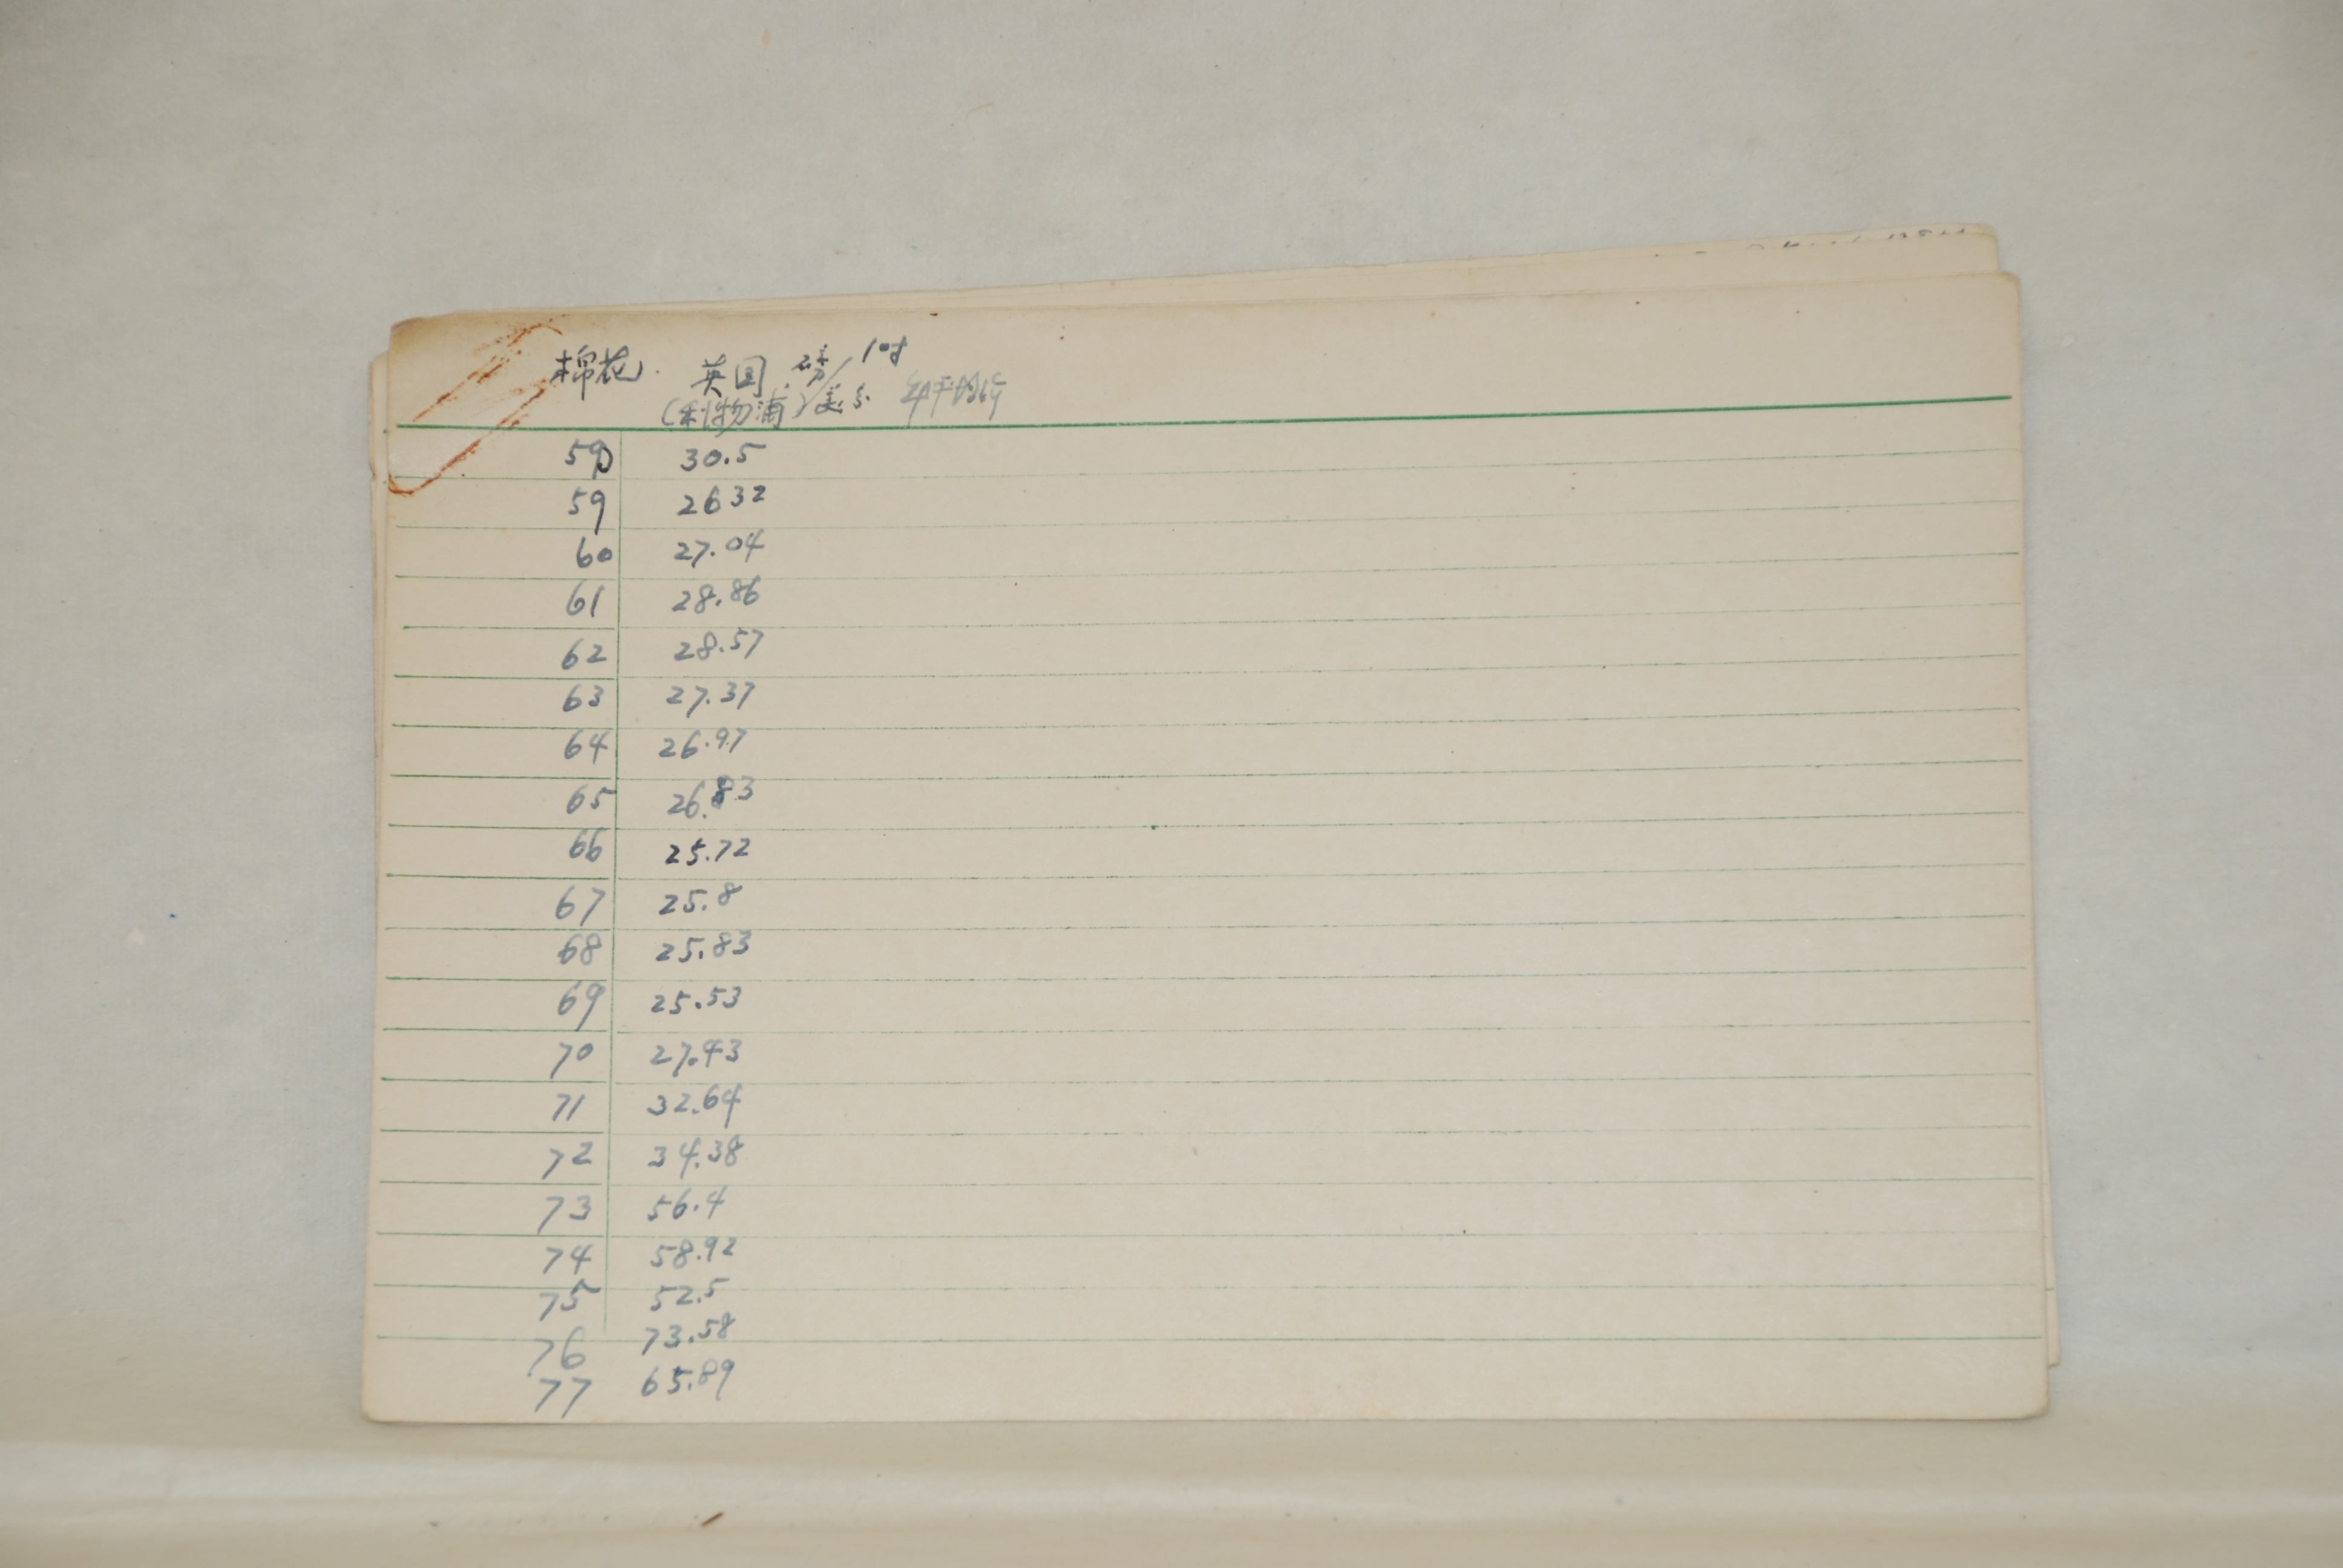 棉花. 英国 磅/1吋
(利物浦) 美分 年平均价
59 30.5
59 26 32
60 27.04
61 28.86
62 28.57
63 27.37
64 26.97
65 26.83
66 25.72
67 25.8
68 25.83
69 25.53
70 27.43
71 32.64
72 34.38
73 56.4
74 58.92
75 52.5
76 73.58
77 65.89